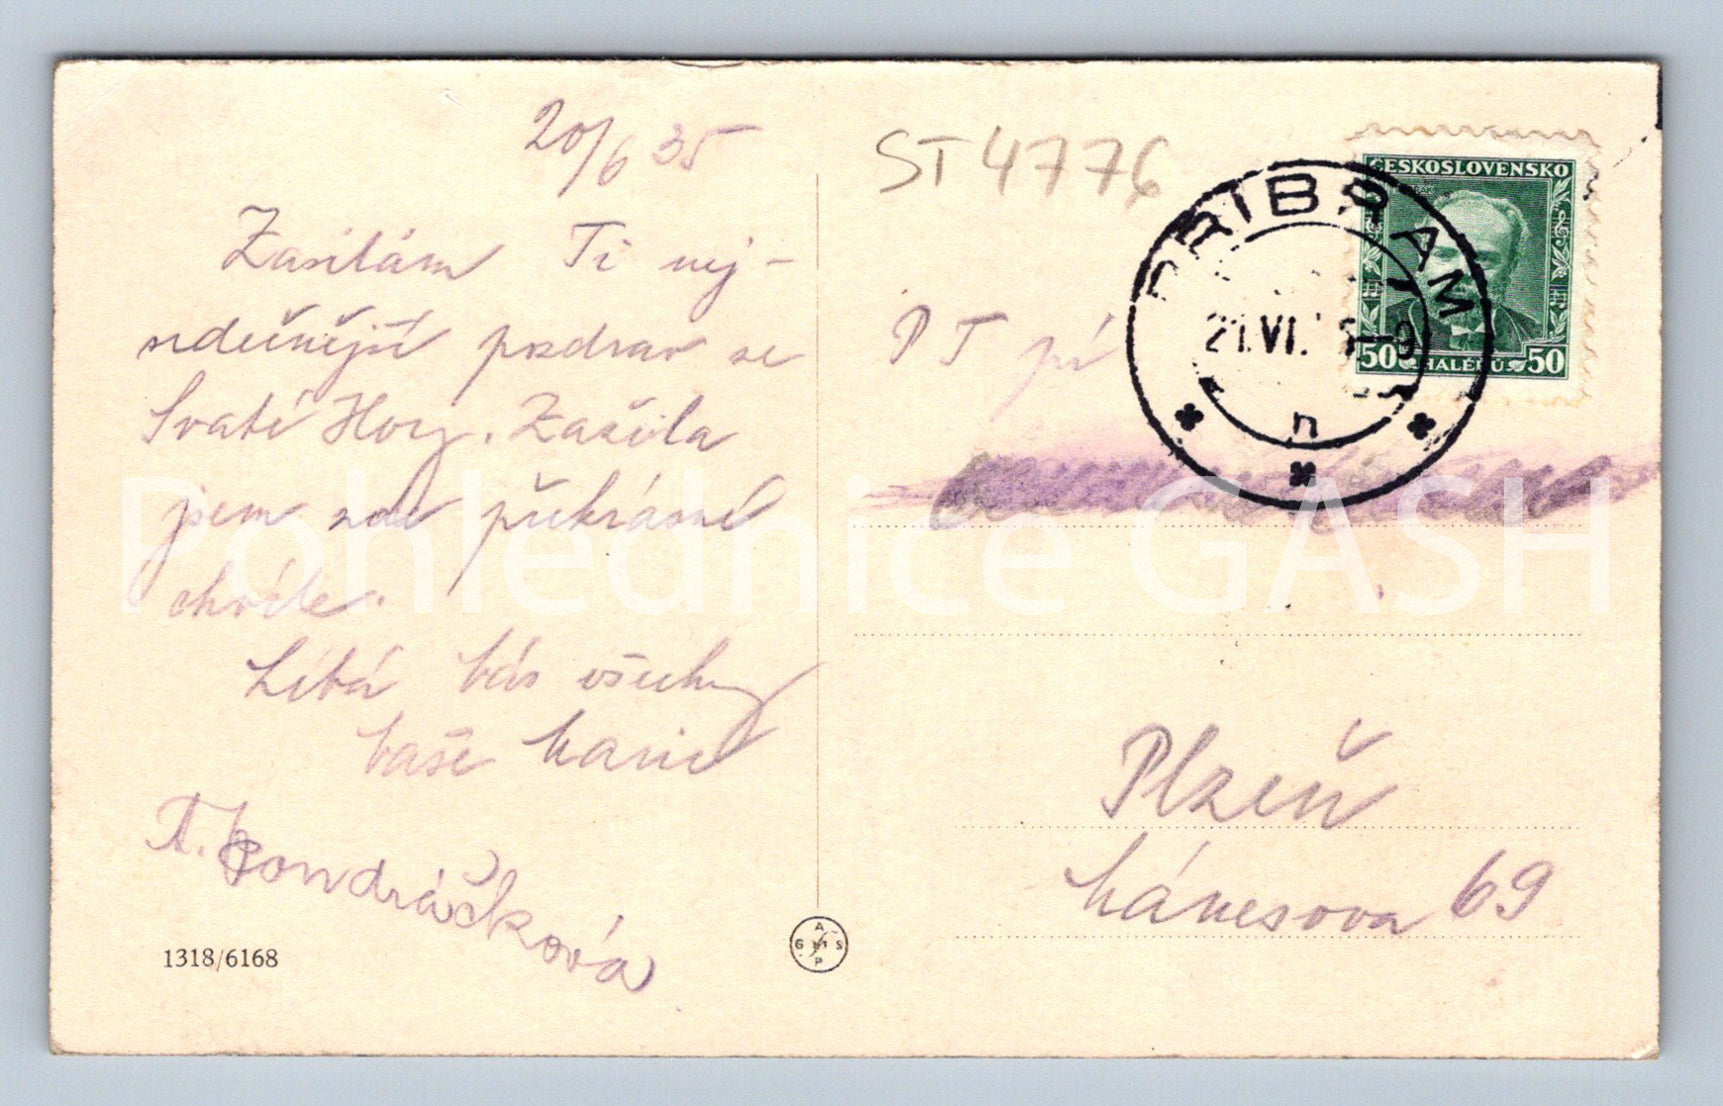 20/6 35
Zasílám Ti nej-
srdečnější pozdrav se
Svaté Hory. Zažila
jsem zde překrásné
chvíle.
Líbá Vás všechny
Vaše Marie
A. Kondráčková
1318/6168
A
G S
P
ST 4776
PŘÍBRAM
21.VI. 5-9
n
ČESKOSLOVENSKO
50 HALÉŘŮ 50
P T pí
Plzeň
Mánesova 69
Pohlednice GASH